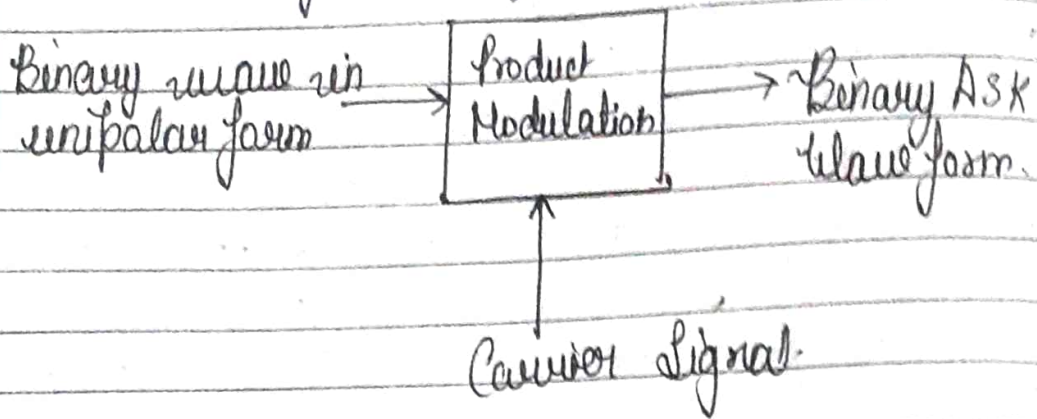 Binary wave in
unipolar form
Product
Modulation
Binary ASK
Wave form.
Carrier Signal.